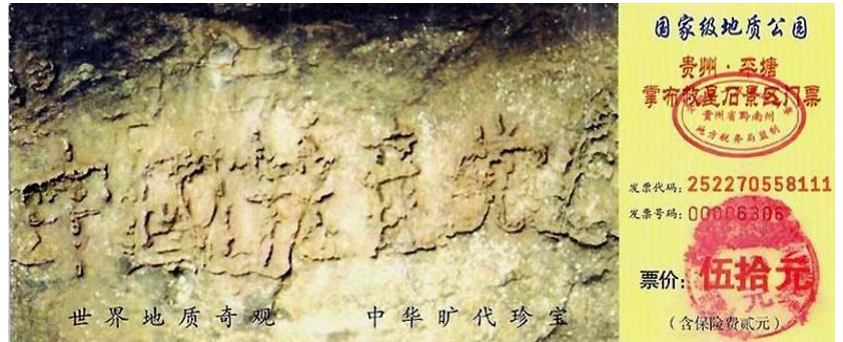 中國共产党亡
世界地质奇观 中华旷代珍宝
国家级地质公园
贵州·平塘
掌布救星石景区门票
贵州省黔南州
地方税务局监制
发票代码:252270558111
发票号码:00006306
票价:伍拾元
(含保险费貳元)